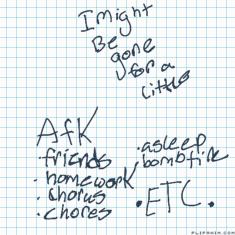 I might
Be
gone
for a
little
AFK
• friends
• homework
• chorus
• chores
• asleep
• bombfire
• ETC.
FLIPANIM.COM